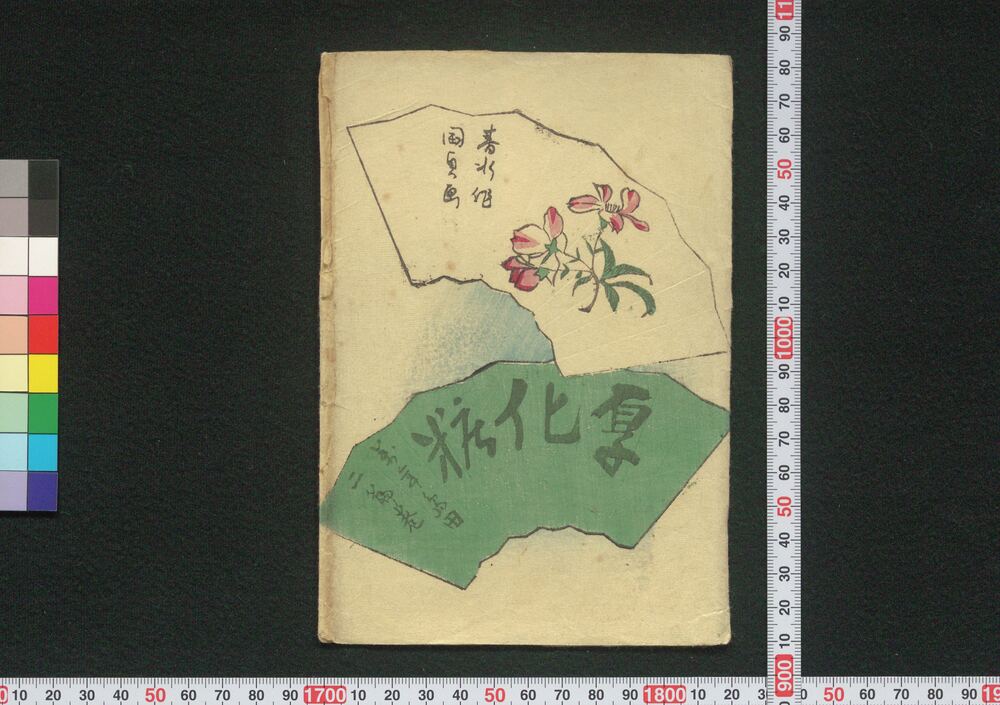 春水作
国貞画
厚化粧
萬年島田
10 20 30 40 50 60 70 80 90 1700 10 20 30 40 50 60 70 80 90 1800 10 20 50 60 70 80 90
90 80 70 60 50 40 30 20 10 1000 90 80 70 60 50 40 30 20 10 900